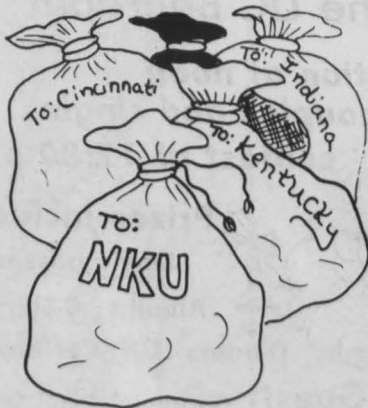 To: Cincinnati
To: Indiana
To: Kentucky
TO:
NKU